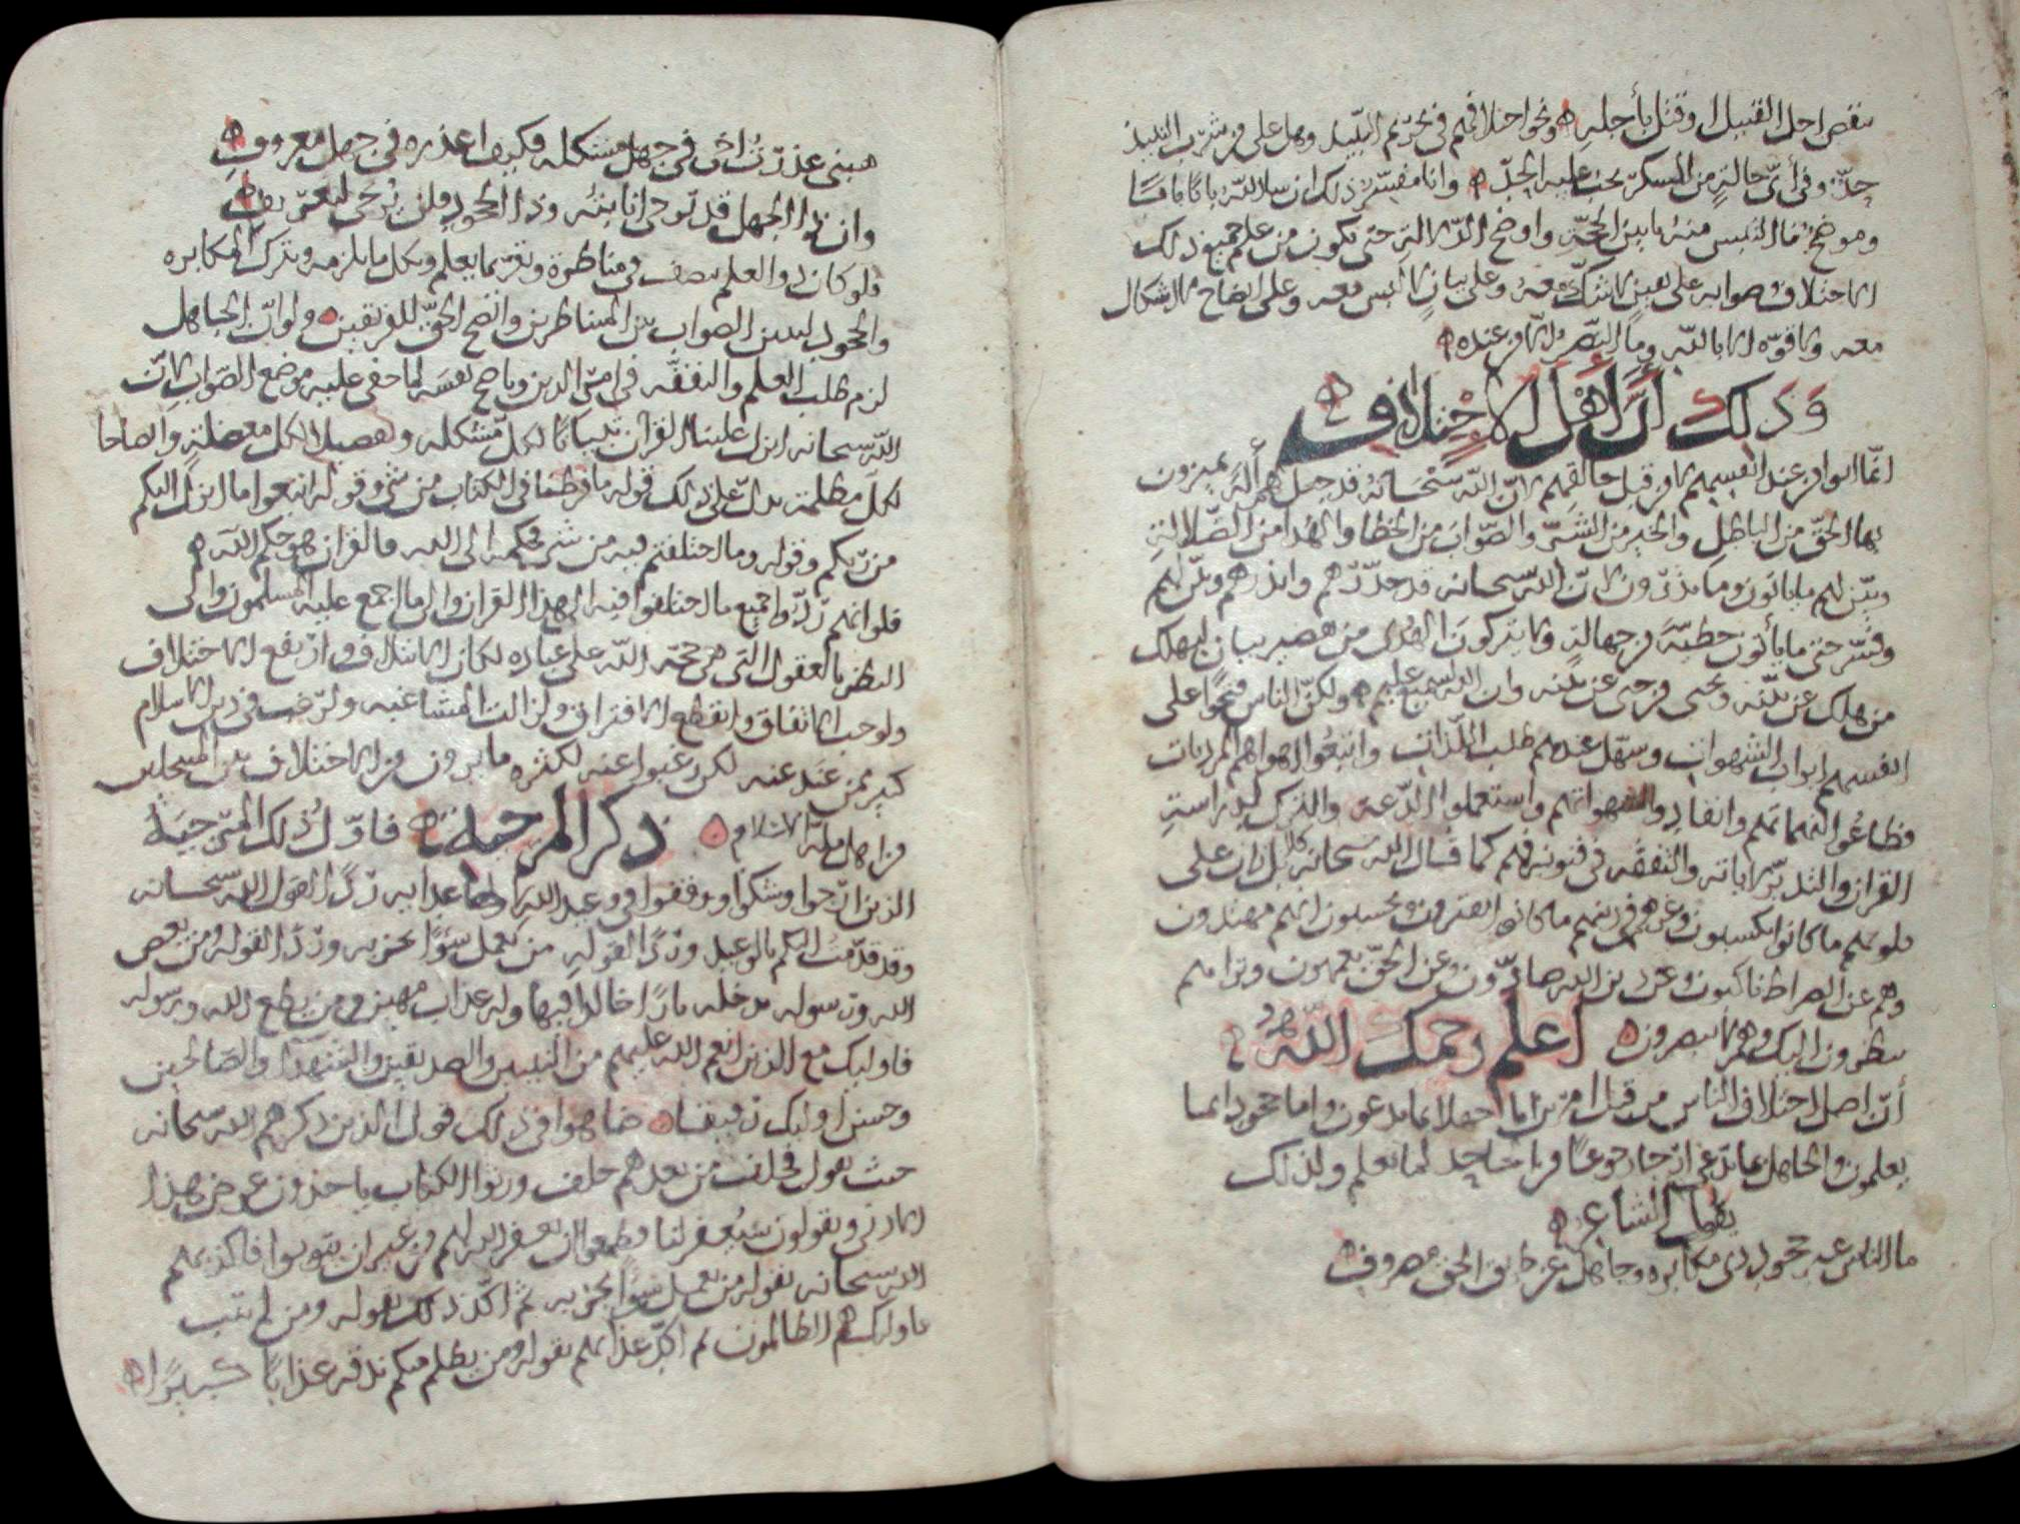 ينقص اجل القتيل او قتل بأجله ونحو اختلافهم في تحريم النبيذ وهل على من شرب النبيذ
حد وفي أي حالة من السكر يجب عليه الحد وانا مفسر ذلك ان شا الله بابا بابا
وموضح ما التبس منه بابين الحجة واوضح الدلالة حتى يكون من علم جميع ذلك
الاختلاف وصوابه على يقين لا شك معه وعلى بيان لا لبس معه وعلى ايضاح لا اشكال
معه ولا قوة الا بالله وما النصر الا من عنده
وذلك أن أهل الاختلاف
انما اتوا من عند انفسهم لا من قبل خالقهم لان الله سبحانه قد جعل لهم ألة يميزون
بها الحق من الباطل والخير من الشر والصواب من الخطا والهدا من الضلالة
وبين لهم ما ياتون وما يذرون لان الله سبحانه قد حذرهم وانذرهم وبين لهم
وفسر حتى ما يأتون خطية من جهالة ولا يتركون الهدى من قصير بيان ليهلك
من هلك عن بينة ويحيى من حي عن بينة وان الله لسميع عليم ولكن الناس فتحوا على
انفسهم ابواب الشهوات وسهل عندهم طلب اللذات واتبعوا اهواهم المرديات
فطاعوا لنهماتهم وانقادوا لشهواتهم واستعملوا الدعة والترك لدراسة
القران والتدبر لاياته والتفقه في فنونه فهم كما قال الله سبحانه كلا بل ران على
قلوبهم ما كانوا يكسبون وغرهم في دينهم ما كانوا يفترون ويحسبون انهم مهتدون
وهم عن الصراط ناكبون وعن دين الله صادون وعن الحق يعمهون وتراهم
ينظرون اليك وهم لا يبصرون اعلم رحمك الله
أن اصل اختلاف الناس من قبل امرين اما جهلا بما يدعون واما جحودا بما
يعلمون والجاهل بما يدعي ارجا رجوعا من الجاحد لما يعلم ولذلك
يقول الشاعر
ما الناس غير جحود ذي مكابرة وجاهل عن طريق الحق مصروف
هبني عذرت اخي في جهل مشكلة فكيف اعذره في جهل معروف
وان ذا الجهل قد ترجى انابته وذا الجحود فلن يرجى لتعريف
ولو كان ذو العلم ينصف في مناظرة ويقر بما يعلم وبكل ما يلزمه ويترك المكابرة
والجحود لبين الصواب بين المتناظرين واتضح الحق للفريقين ولو ان الجاهل
لزم طلب العلم والتفقه في امر الدين وناصح نفسه لما خفي عليه موضع الصواب لان
الله سبحانه انزل علينا القرآن تبيانا لكل مشكلة وتفصيلا لكل معضلة وايضاحا
لكل مظلمة يدل على ذلك قوله ما فرطنا في الكتاب من شي وقوله اتبعوا ما انزل اليكم
من ربكم وقوله وما اختلفتم فيه من شي فحكمه الى الله فالقران هو حكم الله
فلو انهم ردوا جميع ما اختلفوا فيه الى هذا القران والى ما اجمع عليه المسلمون والى
النظر بالعقول التي هي حجة الله على عباده لكان الائتلاف وارتفع الاختلاف
ولوجب الاتفاق وانقطع الافتراق ولزالت المشاغبه ولرغب في دين الاسلام
كثير ممن عند عنه لكن رغبوا عنه لكثرة ما يرون من الاختلاف بين المنتحلين
من اهل ملة الاسلام ذكر المرجية فاول ذلك المرجية
الذين ارجوا وشكوا ووقفوا في وعيد الله لهم عذابه ردا لقول الله سبحانه
وقد قدمت اليكم بالوعيد وردا لقوله من يعمل سوءا يجز به وردا لقوله ومن يعص
الله ورسوله يدخله نارا خالدا فيها وله عذاب مهين ومن يطع الله ورسوله
فاوليك مع الذين انعم الله عليهم من النبيين والصديقين والشهدا والصالحين
وحسن اوليك رفيقا ضاهوا في ذلك قول الذين ذكرهم الله سبحانه
حيث يقول فخلف من بعدهم خلف ورثوا الكتاب ياخذون عرض هذا
الادنى ويقولون سيغفر لنا فطمعوا ان يغفر الله لهم من غير ان يتوبوا فاكذبهم
الله سبحانه بقوله من يعمل سوءا يجز به ثم اكد ذلك بقوله ومن لم يتب
فاوليك هم الظالمون ثم اكد عذابهم بقوله ومن يظلم منكم نذقه عذابا كبيرا